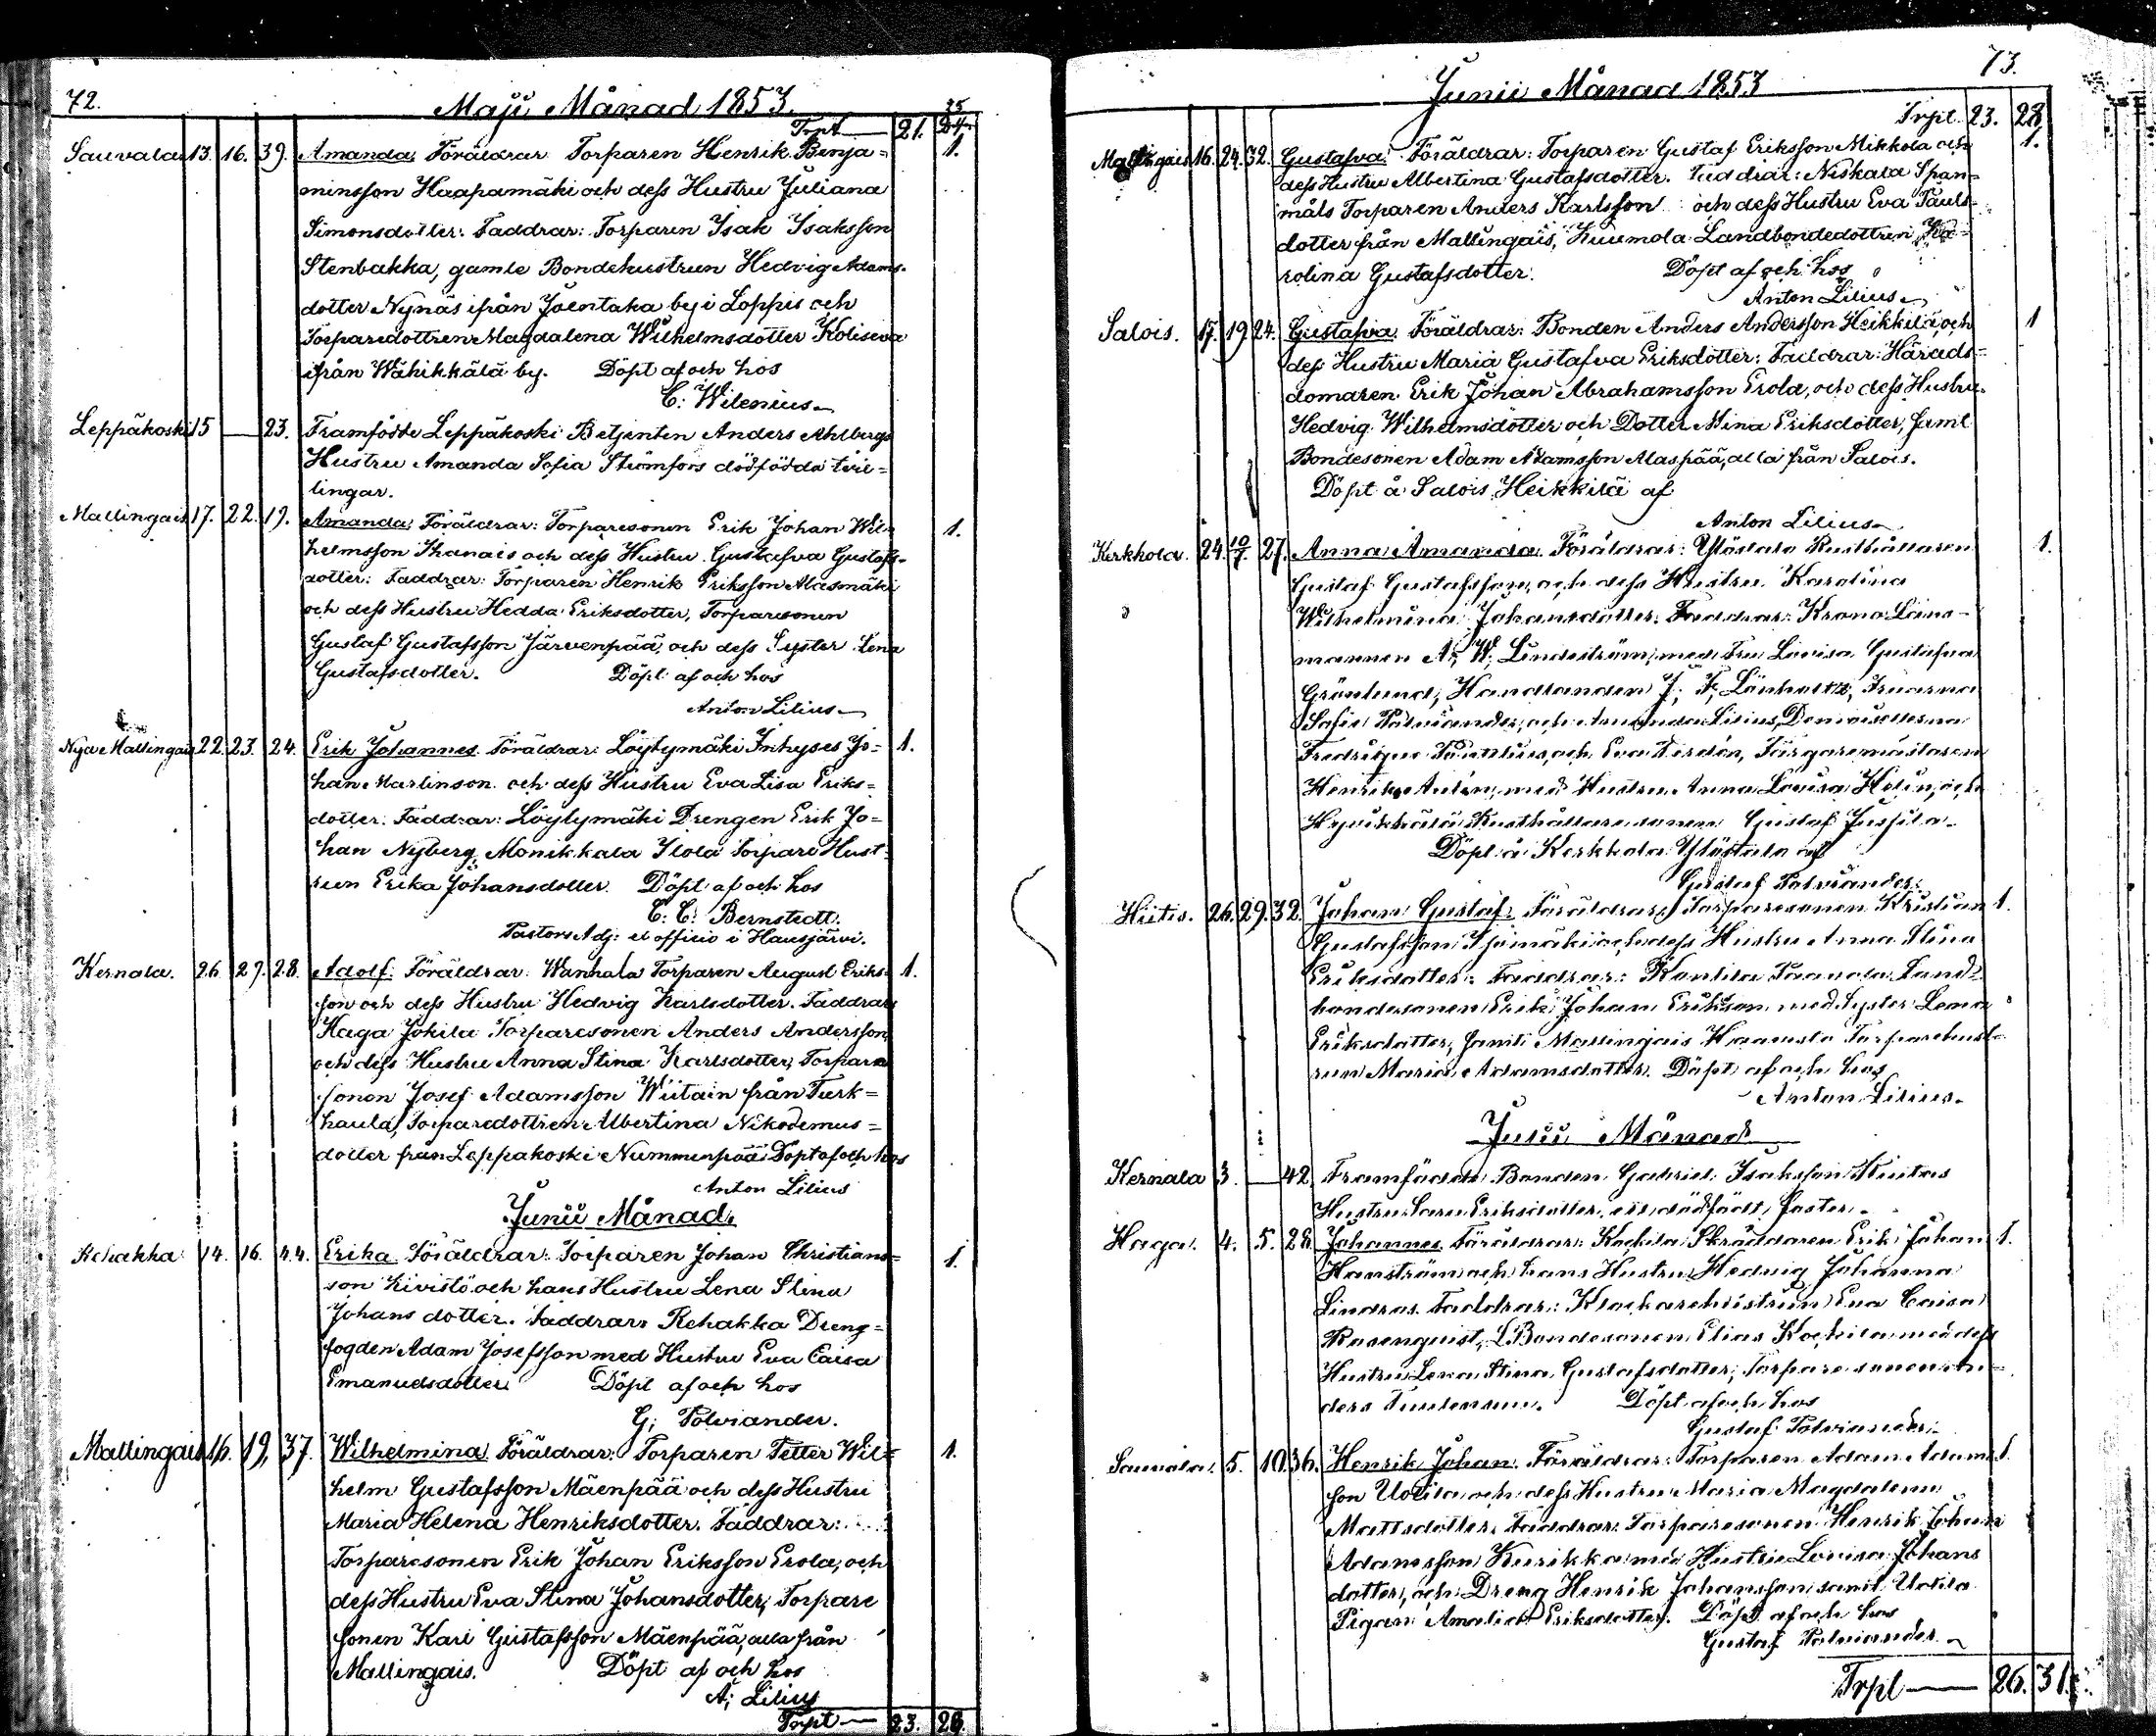 72.
Maji Månad 1853.
25
Trpt — 21. 24.
Sauvala 13. 16. 39. Amanda, Föräldrar Torparen Henrik Benja= 1.
minsson Haapamäki och dess Hustru Juliana
Simonsdotter: Faddrar: Torparen Isak Isaksson
Stenbakka, gamle Bondehustrun Hedvig Adams-
dotter Nynäs ifrån Joentaka by i Loppis och
Torparedottren Magdalena Wilhelmsdotter Koliseva
ifrån Wähikkälä by. Döpt af och hos
C: Wilenius
Leppäkoski 15 — 23. Framfödde Leppäkoski Betjenten Anders Ahlbergs
Hustru Amanda Sofia Strömfors dödfödda tvil=
lingar.
Mallingais 17. 22. 19. Amanda, Föräldrar: Torparesonen Erik Johan Wil= 1.
helmsson Ihanais och dess Hustru Gustafva Gustafs-
dotter: Faddrar: Torparen Henrik Eriksson Alasmäki
och dess Hustru Hedda Eriksdotter, Torparesonen
Gustaf Gustafsson Järvenpää, och dess Syster Lena
Gustafsdotter. Döpt af och hos
Anton Lilius
Nya Mallingais 22. 23. 24. Erik Johannes. Föräldrar: Löylymäki Inhyses Jo= 1.
han Martinson och dess Hustru Eva Lisa Eriks=
dotter. Faddrar: Löylymäki Drengen Erik Jo=
han Nyberg, Monikkala Ilola Torpare Hust=
run Erika Johansdotter. Döpt af och hos
C: C: Bernstedt.
Pastors Adj: et officio i Hausjärvi.
Kernala. 26. 27. 28. Adolf: Föräldrar: Wanhala Torparen August Eriks= 1.
son och dess Hustru Hedvig Karlsdotter. Faddrar
Haga Jokila Torparesonen Anders Andersson,
och dess Hustru Anna Stina Karlsdotter, Torpare
sonen Josef Adamsson Wiitain från Turk=
haula, Torparedottren Albertina Nikodemus=
dotter från Leppäkoski Nummenpää Döpt af och hos
Anton Lilius
Junii Månad.
Rehakka 14. 16. 44. Erika. Föräldrar: Torparen Johan Christians= 1.
son Kivistö och hans Hustru Lena Stina
Johans dotter. Faddrar: Rehakka Dreng=
fogden Adam Josefsson med Hustru Eva Caisa
Emanuelsdotter. Döpt af och hos
G; Polviander.
Mallingais 16. 19, 37. Wilhelmina. Föräldrar: Torparen Petter Wil= 1.
helm Gustafsson Mäenpää och dess Hustru
Maria Helena Henriksdotter. Faddrar:
Torparesonen Erik Johan Eriksson Erola, och
dess Hustru Eva Stina Johansdotter, Torpare
sonen Karl Gustafsson Mäenpää, alla från
Mallingais. Döpt af och hos
A; Lilius
Trpt — 23. 28.
73.
Junii Månad 1853
Trpt. 23. 28.
Mallingais 16. 24. 32. Gustafva. Föräldrar: Torparen Gustaf Eriksson Mikkola och 1.
dess Hustru Albertina Gustafsdotter. Faddrar: Niskala Span=
måls Torparen Anders Karlsson och dess Hustru Eva Pauls=
dotter från Mallingais, Kuumola Landbondedottren Ka=
rolina Gustafsdotter. Döpt af och hos
Anton Lilius
Salois. 17. 19 24. Gustafva. Föräldrar: Bonden Anders Andersson Heikkilä, och 1
dess Hustru Maria Gustafva Eriksdotter: Faddrar: Härads=
domaren Erik Johan Abrahamsson Erola, och dess Hustru
Hedvig Wilhelmsdotter och Dotter Mina Eriksdotter, samt
Bondesonen Adam Adamsson Alaspää, alla från Salois.
Döpt å Salois Heikkilä af
Anton Lilius
Kerkkola. 24. 10/7. 27. Anna Amanda. Föräldrar: Ylöstalo Rusthållaren 1.
Gustaf Gustafsson, och dess Hustru Karolina
Wilhelmina Johansdotter. Faddrar: Krono Läns-
mannen A; W; Lindström, med Fru Lovisa Gustafva
Grönlund, Handlanden J; F; Lönholtz, Fruarna
Sofie Polviander, och Amanda Lilius, Demoisellerna
Fredrique och Eva Färgaremästaren
Henrik med Hustru Anna Lovisa Helin, och
Hyvikkälä Rusthållare sonen Gustaf Jussila.
Döpt å Kerkkola Ylöstalo af
Gustaf Polviander.
Hiitis. 26. 29. 32. Johan Gustaf: Föräldrar: Torparesonen Kristian 1.
Gustafsson och dess Hustru Anna Stina
Eriksdotter: Faddrar: Land=
bondesonen Erik Johan Eriksson med Syster Lena
Eriksdotter, samt Mallingais Torparehust=
run Maria Adamsdotter. Döpt af och hos
Anton Lilius.
Julii Månad
Kernala 3. — 42 Framfödde Bonden Gabriel Isaksson
Hustru Eriksdotter, ett dödfödt foster.
Haga. 4. 5. 28. Johannes. Föräldrar: Kockila Skräddaren Erik Johan 1.
Hanström och hans Hustru Hedvig Johanna
Lindros. Faddrar: Klockarehustrun Eva Caisa
Rosenquist, Bondesonen Elias Kockila med dess
Hustru Lena Stina Gustafsdotter, Torpare sonen An=
ders Döpt af och hos
Gustaf Polviander.
Sauvala. 5. 10. 36. Henrik Johan. Föräldrar: Torparen Adam Adams 1.
son Uotila och dess Hustru Maria Magdalena
Mattsdotter. Faddrar: Torparesonen Henrik Johan
Adamsson Kurikka med Hustru Lovisa Johans
dotter, och Dreng Henrik Johansson samt Uotila
Pigan Amalia Eriksdotter. Döpt af och hos
Gustaf Polviander
Trpt — 26. 31.